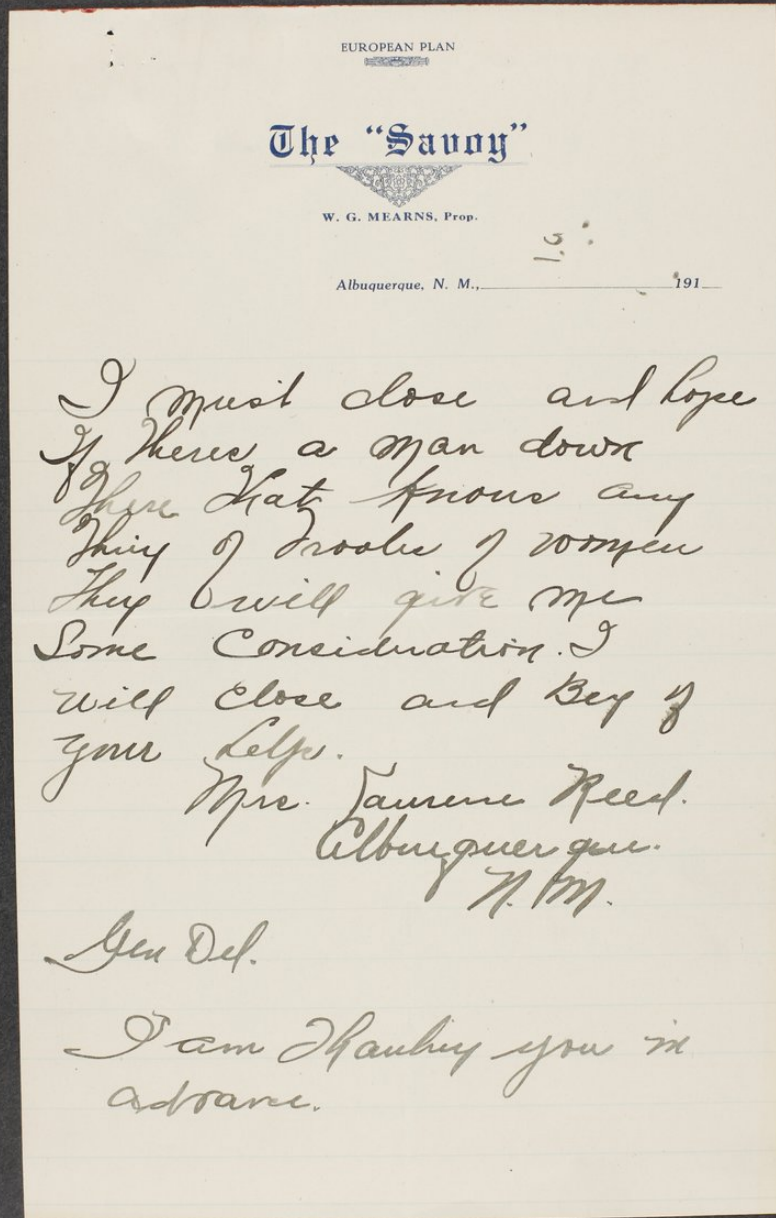 EUROPEAN PLAN
The "Savoy"
W. G. MEARNS, Prop.
Albuquerque, N. M., 191
I must close and hope
If theres a man down
there that knows any
thing of troubles of women
they will give me
Some Consideration. I
will close and Beg of
your help.
Mrs. Reed.
Albuquerque.
N. M.
Gen Del.
I am thanking you in
advance.